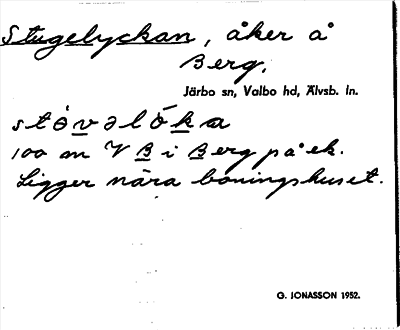 Stugelyckan, åker å
Berg.
Järbo sn, Valbo hd, Älvsb. ln.
100 m V B i Berg på ek.
Ligger nära boningshuset.
G. JONASSON 1952.